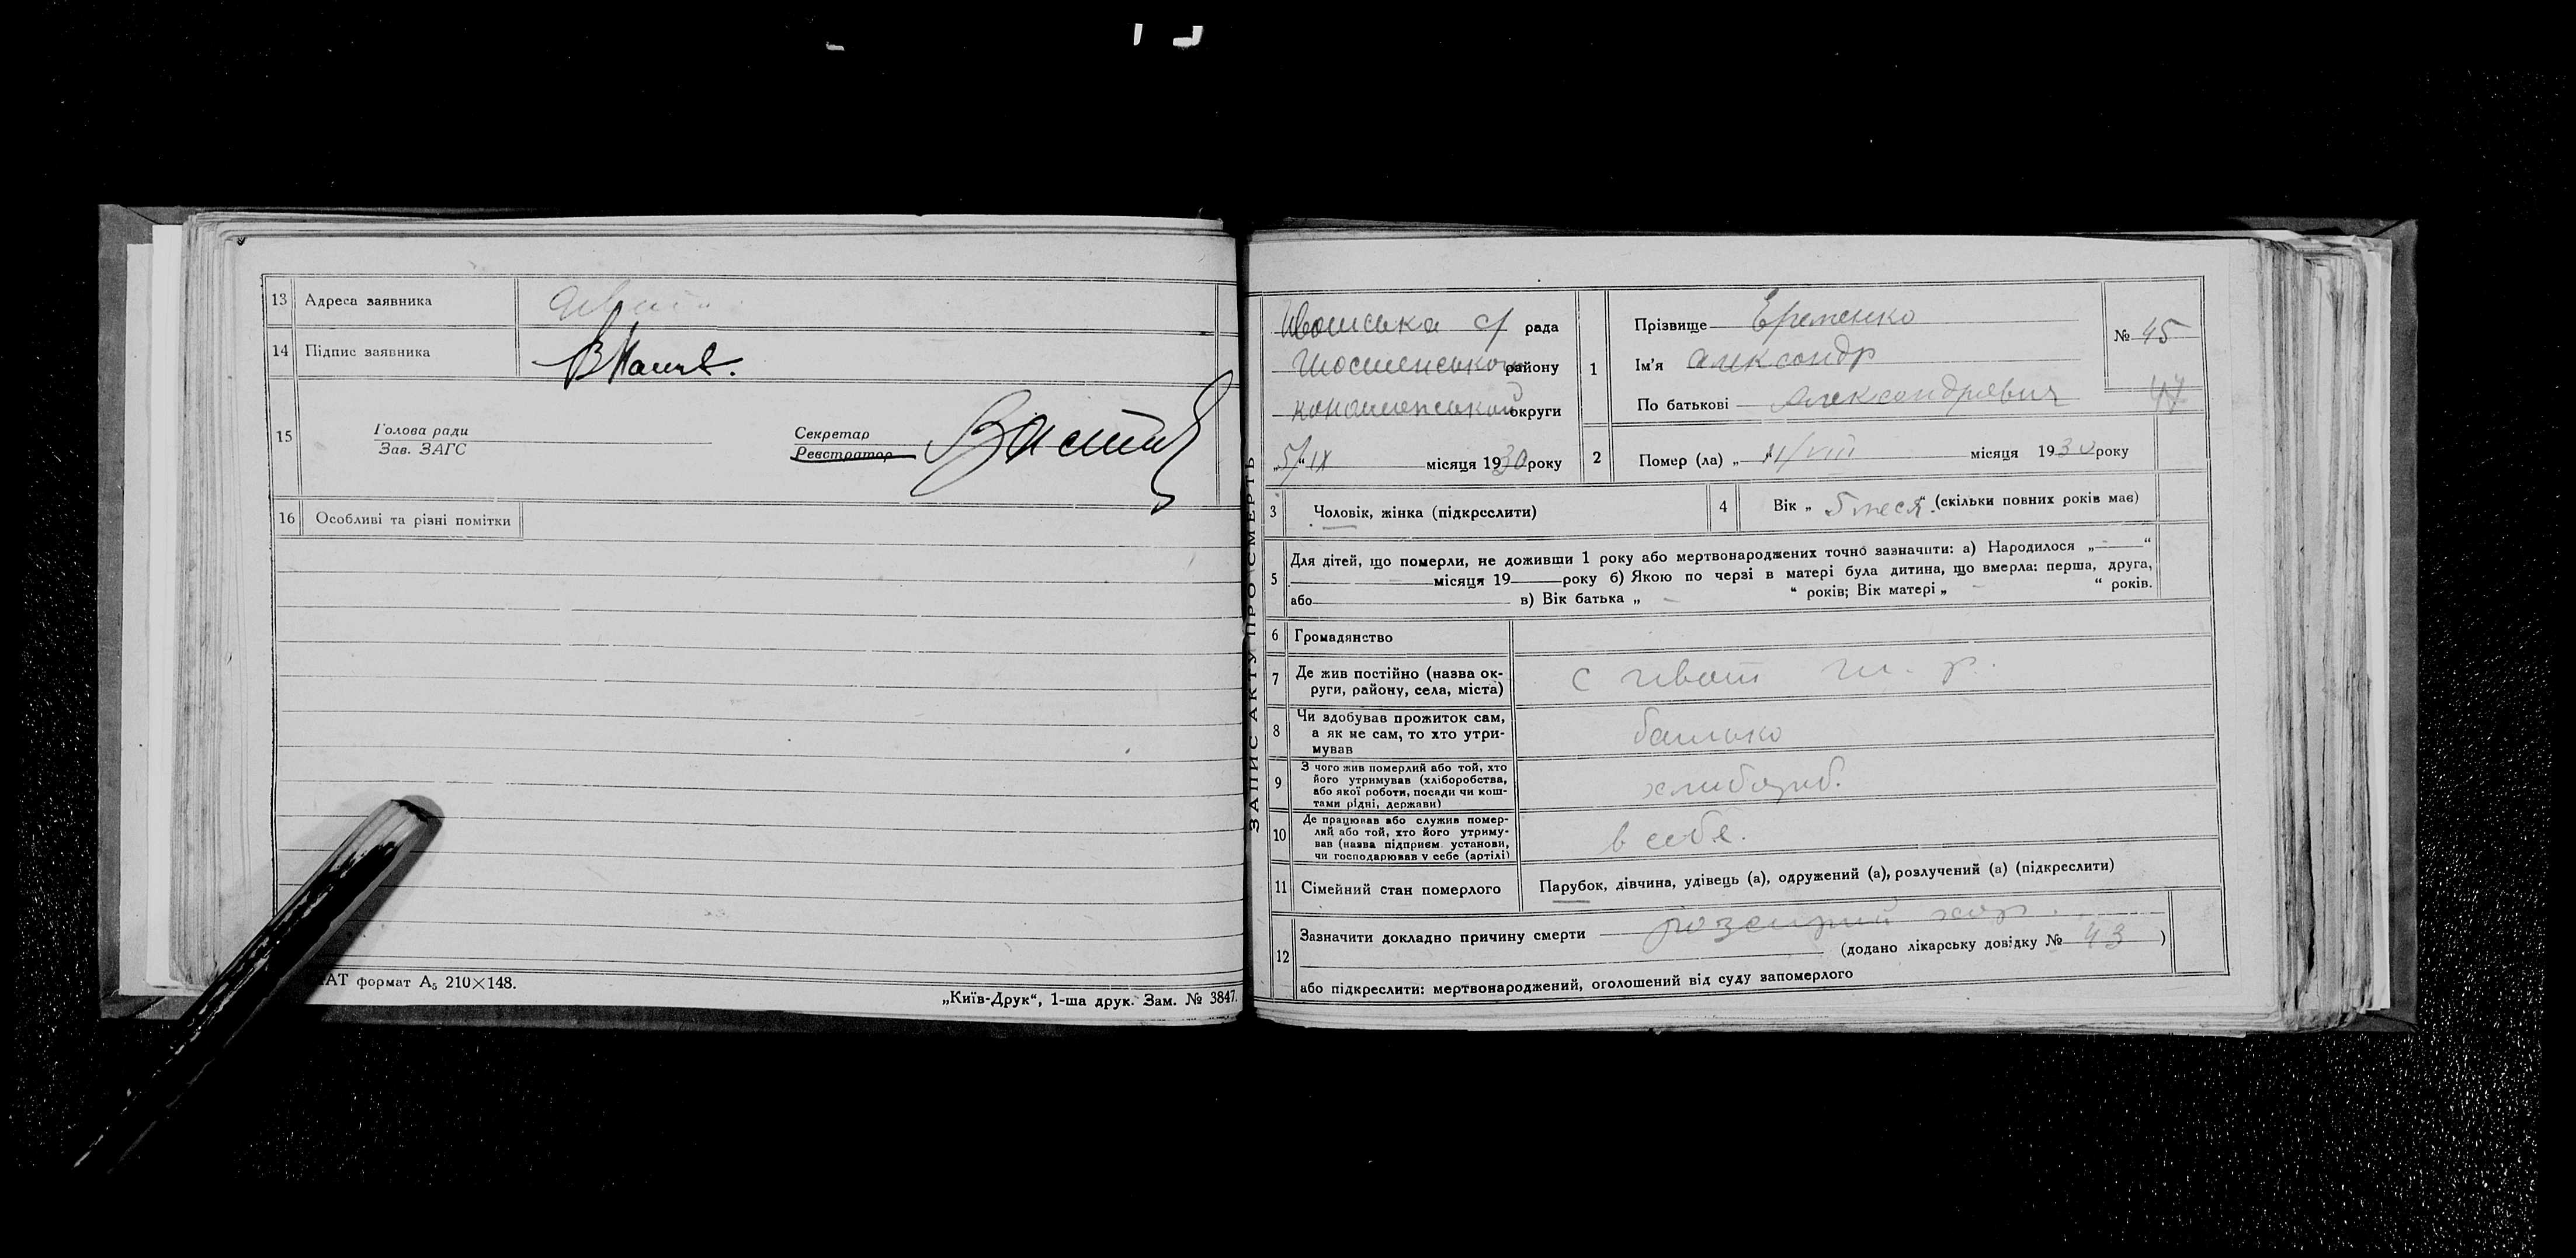 13 Адреса заявника
14 Підпис заявника
15 Голова ради
Зав. ЗАГС
Секретар
Реєстратор
16 Особливі та різні помітки
АТ формат А₅ 210×148.
„Київ-Друк“, 1-ша друк. Зам. № 3847.
ЗАПИС АКТУ ПРО СМЕРТЬ
Ивотська с/ рада
Шостенського району
Конотопської округи
„5/“ IX місяця 1930 року
1 Прізвище Еременко
Ім'я Александр
По батькові Александрович
№ 45
47
2 Помер (ла) „ /VIII місяця 1930 року
3 Чоловік, жінка (підкреслити)
4 Вік „ 5 меся“. (скільки повних років має)
5 Для дітей, що померли, не доживши 1 року або мертвонароджених точно зазначити: а) Народилося „ “
місяця 19 року б) Якою по черзі в матері була дитина, що вмерла: перша, друга,
або в) Вік батька „ - “ років; Вік матері „ - “ років.
6 Громадянство
7 Де жив постійно (назва ок-
руги, району, села, міста)
с Ивот Ш. р.
8 Чи здобував прожиток сам,
а як не сам, то хто утри-
мував
батько
9 З чого жив померлий або той, хто
його утримував (хліборобства,
або якої роботи, посади чи кош-
тами рідні, держави)
хлибороб.
10 Де працював або служив помер-
лий або той, хто його утриму-
вав (назва підприєм. установи,
чи господарював у себе (артілі)
в себе.
11 Сімейний стан померлого
Парубок, дівчина, удівець (а), одружений (а), розлучений (а) (підкреслити)
12 Зазначити докладно причину смерти
(додано лікарську довідку № 43 )
або підкреслити: мертвонароджений, оголошений від суду запомерлого